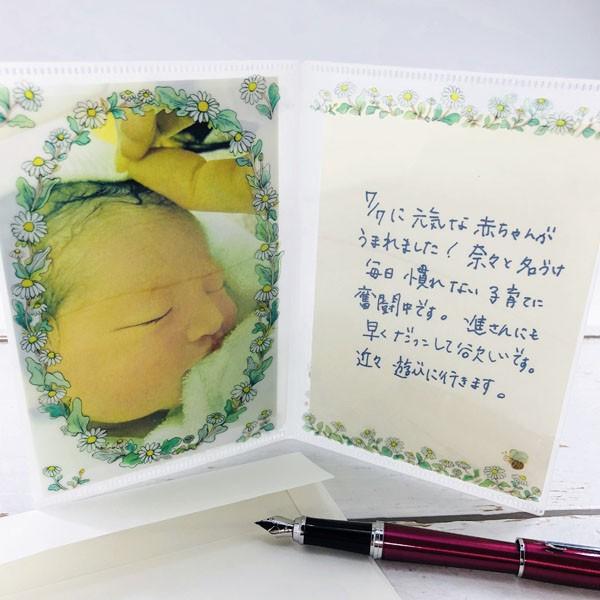 7/7に 元気な 赤ちゃんが
うまれました! 奈々と 名づけ
毎日 慣れない 子育てに
奮闘中です。 進さんにも
早く だっこして 欲しいです。
近々 遊びに行きます。